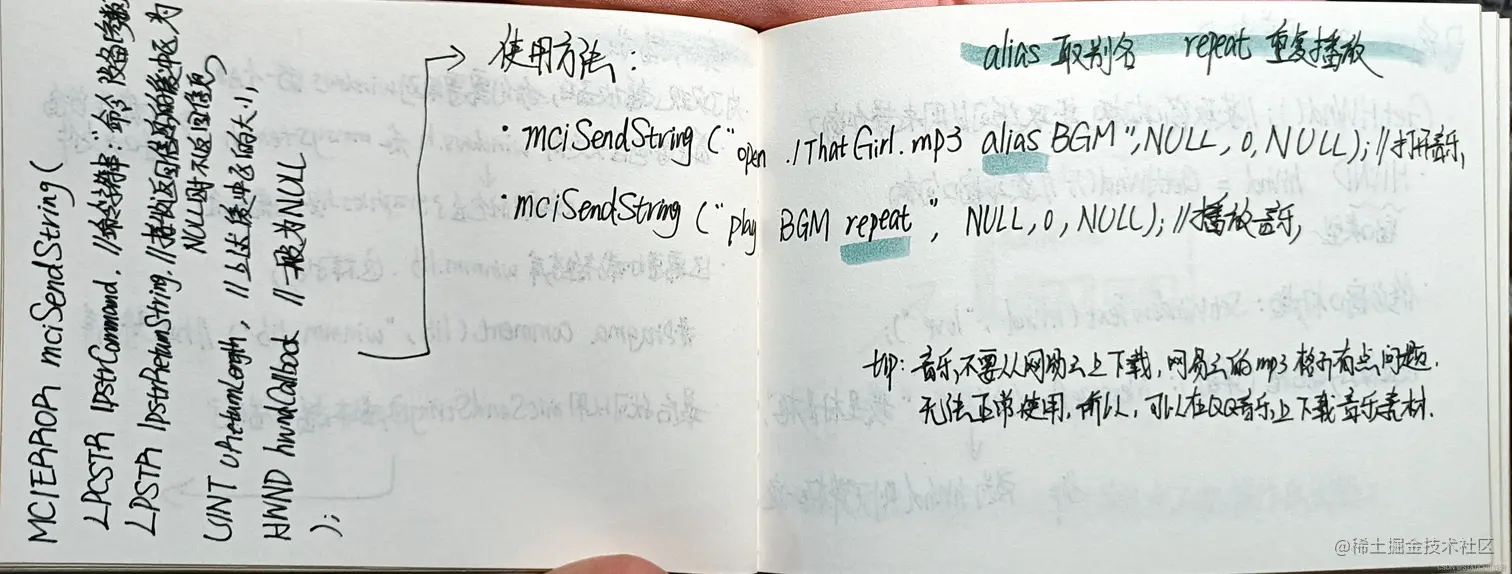 MCIERROR mciSendString(
LPCSTR lpstrCommand, //命令字符串:"命令 设备[参数]"
LPSTR lpstrReturnString, //接收返回信息的缓冲区,为
NULL时不返回信息
UINT uReturnLength, //上述缓冲区的大小
HWND hwndCallback //一般为NULL
);
使用方法:
· mciSendString("open ./ThatGirl.mp3 alias BGM",NULL,0,NULL);//打开音乐
· mciSendString("play BGM repeat", NULL,0,NULL);//播放音乐
alias 取别名 repeat 重复播放
tip: 音乐不要从网易云上下载,网易云的mp3格式有点问题.
无法正常使用,所以,可以在QQ音乐上下载音乐素材.
@稀土掘金技术社区